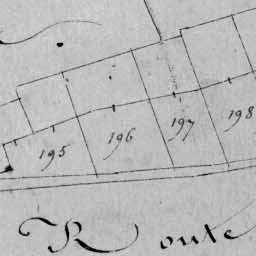 195 196 197 198
Route